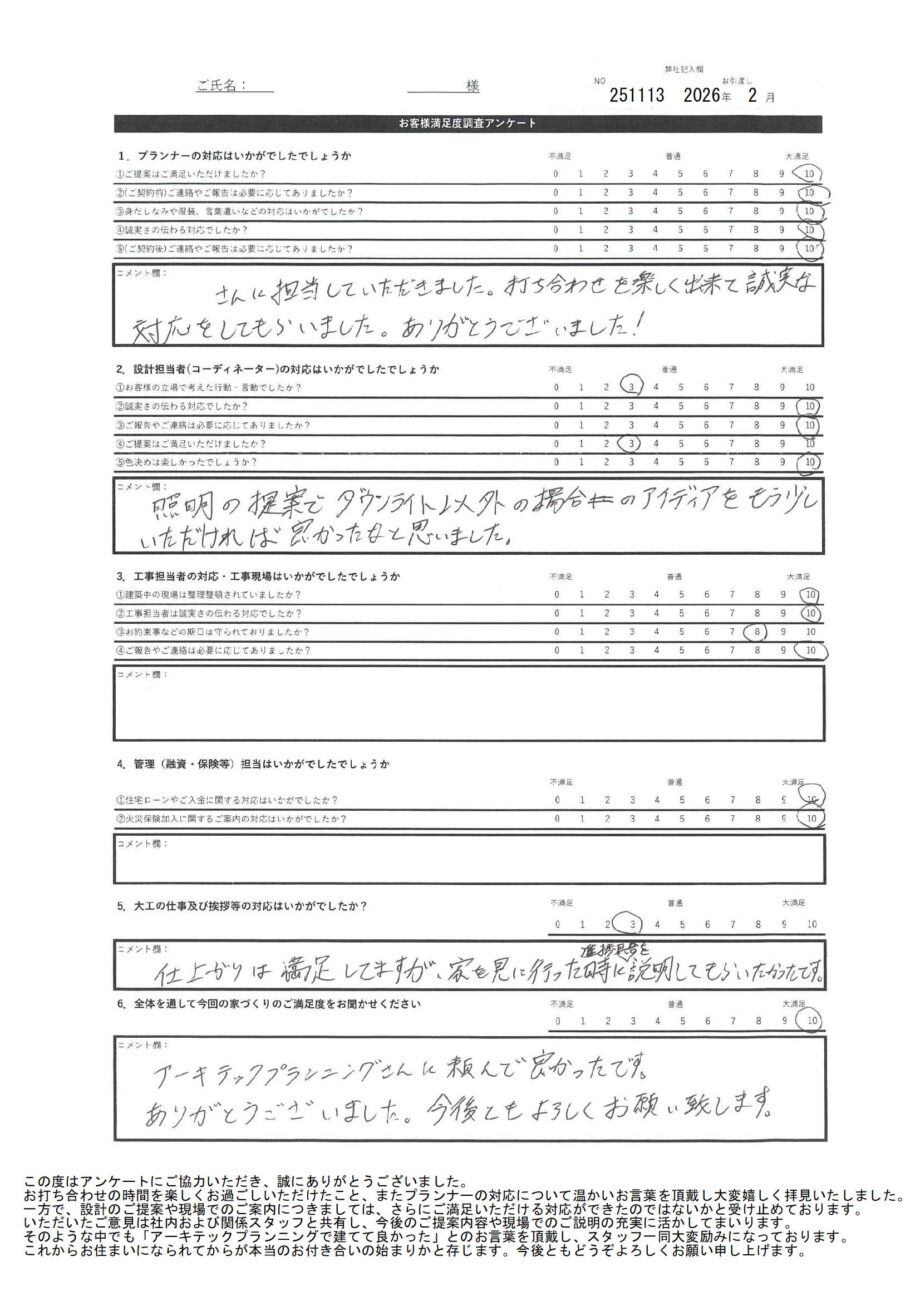 弊社記入欄
ご氏名： 様 NO お引渡し
251113 2026年 2月
お客様満足度調査アンケート
1．プランナーの対応はいかがでしたでしょうか 不満足 普通 大満足
①ご提案はご満足いただけましたか？ 0 1 2 3 4 5 6 7 8 9 10
②(ご契約前)ご連絡やご報告は必要に応じてありましたか？ 0 1 2 3 4 5 6 7 8 9 10
③身だしなみや服装、言葉遣いなどの対応はいかがでしたか？ 0 1 2 3 4 5 6 7 8 9 10
④誠実さの伝わる対応でしたか？ 0 1 2 3 4 5 6 7 8 9 10
⑤(ご契約後)ご連絡やご報告は必要に応じてありましたか？ 0 1 2 3 4 5 6 7 8 9 10
コメント欄：
さんに担当していただきました。打ち合わせを楽しく出来て誠実な
対応をしてもらいました。ありがとうございました！
2．設計担当者(コーディネーター)の対応はいかがでしたでしょうか 不満足 普通 大満足
①お客様の立場で考えた行動・言動でしたか？ 0 1 2 3 4 5 6 7 8 9 10
②誠実さの伝わる対応でしたか？ 0 1 2 3 4 5 6 7 8 9 10
③ご報告やご連絡は必要に応じてありましたか？ 0 1 2 3 4 5 6 7 8 9 10
④ご提案はご満足いただけましたか？ 0 1 2 3 4 5 6 7 8 9 10
⑤色決めは楽しかったでしょうか？ 0 1 2 3 4 5 6 7 8 9 10
コメント欄：
照明の提案でダウンライト以外の場合のアイディアをもう少し
いただければ良かったなと思いました。
3．工事担当者の対応・工事現場はいかがでしたでしょうか 不満足 普通 大満足
①建築中の現場は整理整頓されていましたか？ 0 1 2 3 4 5 6 7 8 9 10
②工事担当者は誠実さの伝わる対応でしたか？ 0 1 2 3 4 5 6 7 8 9 10
③お約束事などの期日は守られておりましたか？ 0 1 2 3 4 5 6 7 8 9 10
④ご報告やご連絡は必要に応じてありましたか？ 0 1 2 3 4 5 6 7 8 9 10
コメント欄：
4．管理（融資・保険等）担当はいかがでしたでしょうか
不満足 普通 大満足
①住宅ローンやご入金に関する対応はいかがでしたか？ 0 1 2 3 4 5 6 7 8 9 10
②火災保険加入に関するご案内の対応はいかがでしたか？ 0 1 2 3 4 5 6 7 8 9 10
コメント欄：
5．大工の仕事及び挨拶等の対応はいかがでしたか？ 不満足 普通 大満足
0 1 2 3 4 5 6 7 8 9 10
コメント欄：
進捗具合を
仕上がりは満足してますが、家を見に行った時に説明してもらいたかったです。
6．全体を通して今回の家づくりのご満足度をお聞かせください 不満足 普通 大満足
0 1 2 3 4 5 6 7 8 9 10
コメント欄：
アーキテックプランニングさんに頼んで良かったです。
ありがとうございました。今後ともよろしくお願い致します。
この度はアンケートにご協力いただき、誠にありがとうございました。
お打ち合わせの時間を楽しくお過ごしいただけたこと、またプランナーの対応について温かいお言葉を頂戴し大変嬉しく拝見いたしました。
一方で、設計のご提案や現場でのご案内につきましては、さらにご満足いただける対応ができたのではないかと受け止めております。
いただいたご意見は社内および関係スタッフと共有し、今後のご提案内容や現場でのご説明の充実に活かしてまいります。
そのような中でも「アーキテックプランニングで建てて良かった」とのお言葉を頂戴し、スタッフ一同大変励みになっております。
これからお住まいになられてからが本当のお付き合いの始まりかと存じます。今後ともどうぞよろしくお願い申し上げます。